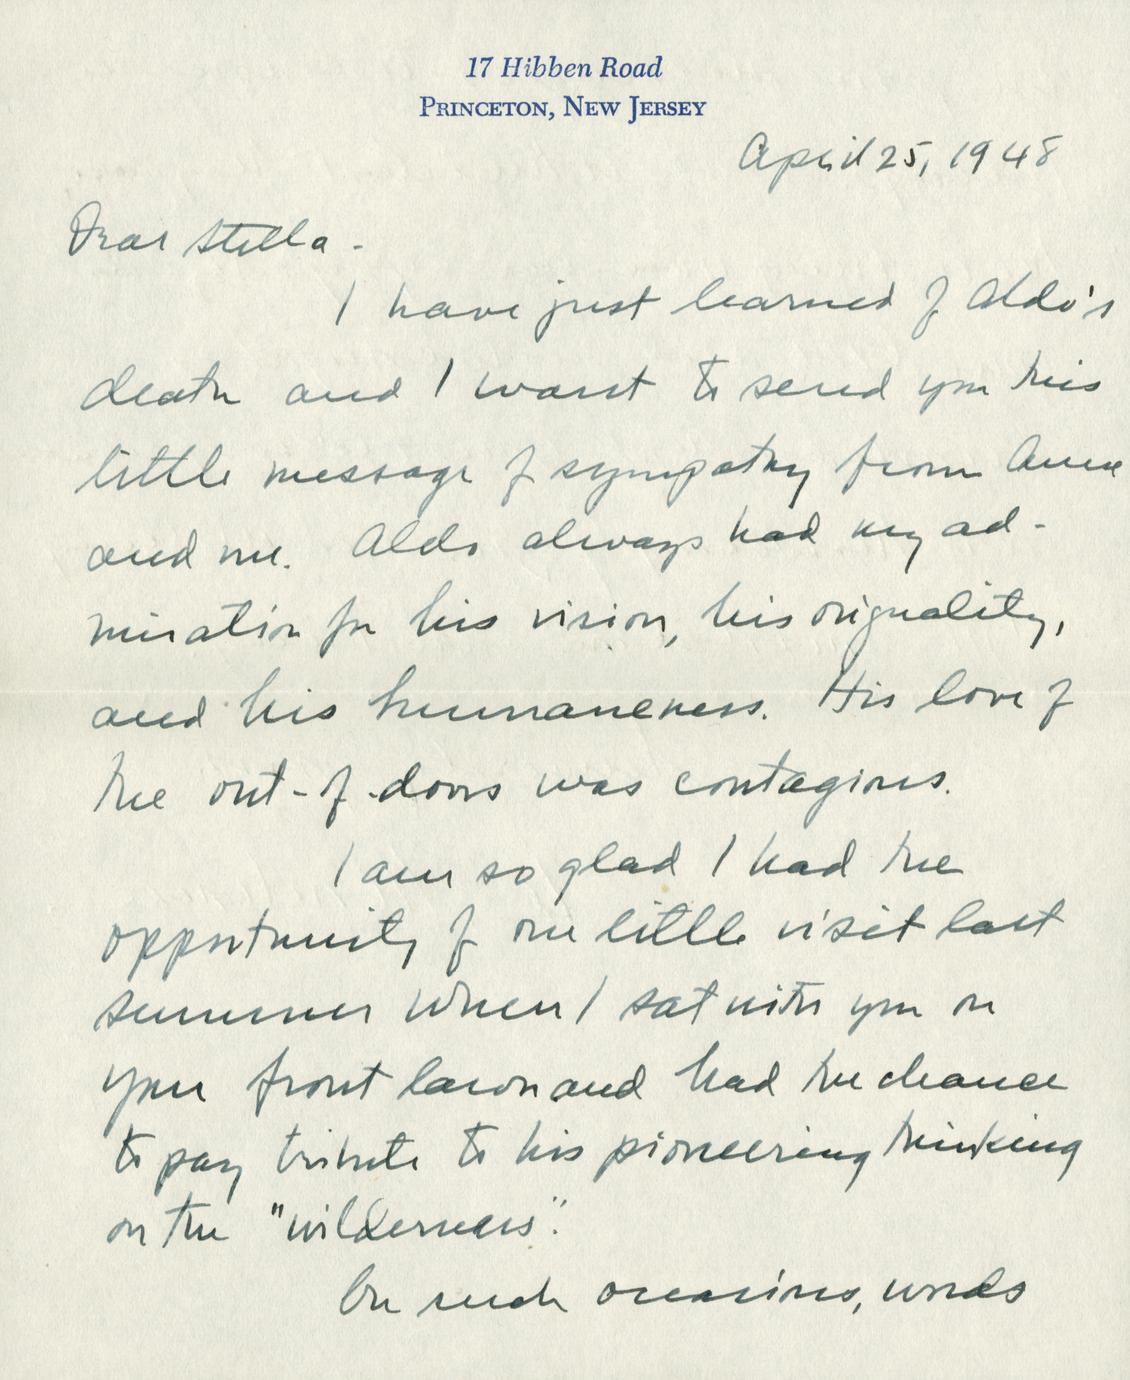 17 Hibben Road
PRINCETON, NEW JERSEY
April 25, 1948
Dear Stella -
I have just learned of Aldo's
death and I want to send you this
little message of sympathy from Anne
and me. Aldo always had my ad-
miration for his vision, his originality,
and his humaneness. His love of
the out-of-doors was contagious.
I am so glad I had the
opportunity of our little visit last
summer when I sat with you on
your front lawn and had the chance
to pay tribute to his pioneering thinking
on the "wilderness".
On such occasions, words